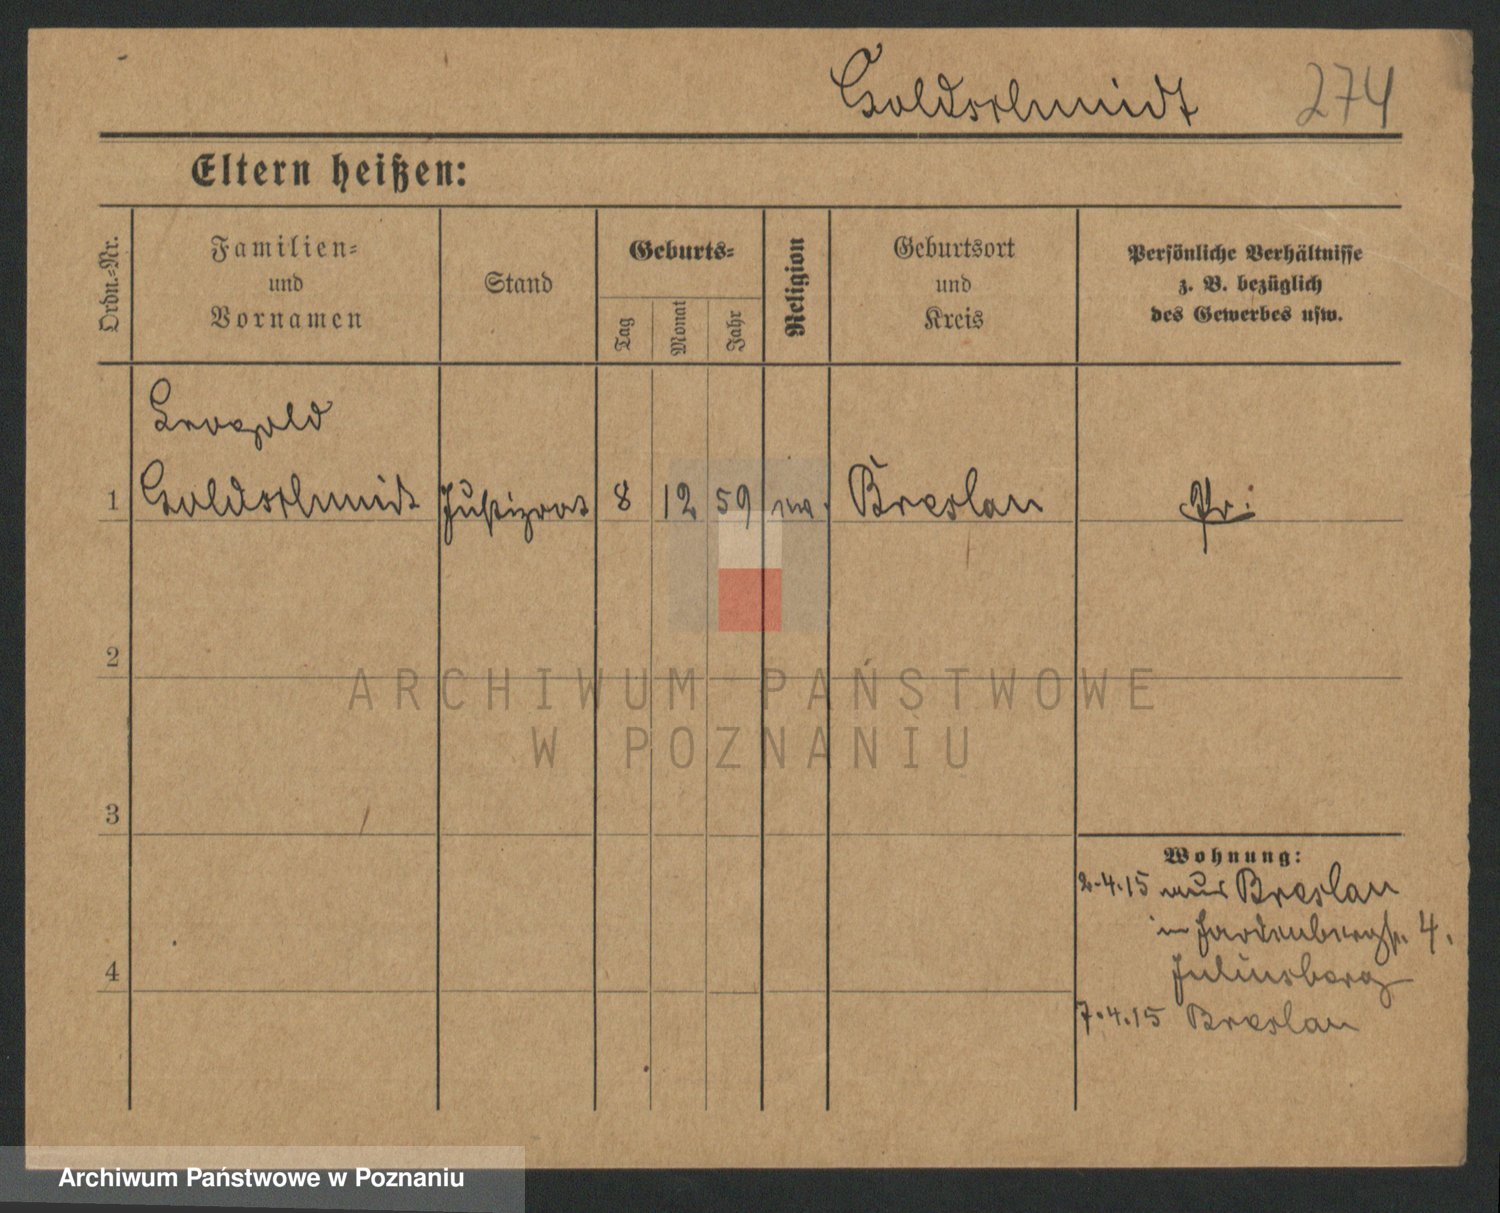 Goldschmidt 274
Eltern heißen:
Ordn.=Nr.
Familien=
und
Vornamen
Stand
Geburts=
Tag
Monat
Jahr
Religion
Geburtsort
und
Kreis
Persönliche Verhältnisse
z. B. bezüglich
des Gewerbes usw.
Leopold
1 Goldschmidt Justizrat 8 12 59 Breslau Pr.
2
3
4
Wohnung:
2.4.15 aus Breslau
in Hardenbergstr. 4.
Juliusberg
7.4.15 Breslau
ARCHIWUM PAŃSTWOWE
W POZNANIU
Archiwum Państwowe w Poznaniu